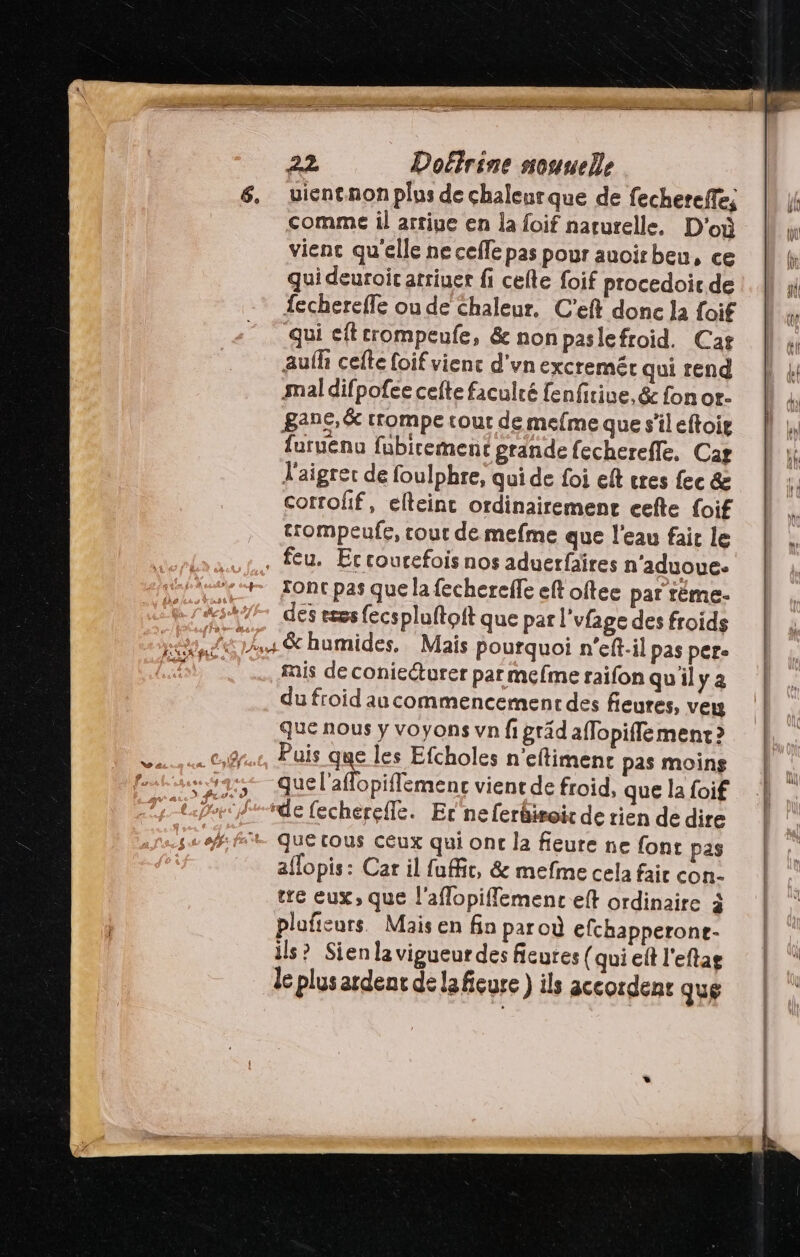 22 Doctrine nouuelle
6. uient non plus de chaleur que de ſechereſſe,
comme il arriue en la ſoif naturelle. D'où
vient qu'elle ne ceſſe pas pour auoir beu, ce
qui deuroit arriuer ſi ceſte ſoif procedoit de
ſechereſſe ou de chaleur. C'eſt donc la ſoif
qui eſt trompeuſe, & non pas le froid. Car
auſſi ceſte ſoif vient d'vn excremēt qui rend
mal diſpoſee ceſte faculté ſenſitiue, & ſon or-
gane, & trompe tout de meſme que s'il eſtoit
ſuruenu ſubitement grande ſechereſſe. Car
l'aigret de ſoulphre, qui de ſoi eſt tres ſec &
corroſif, eſteint ordinairement ceſte ſoif
trompeuſe, tout de meſme que l'eau fait le
feu. Et toutefois nos aduerſaires n'aduoue-
ront pas que la ſechereſſe eſt oſtee par rēme-
des tres ſecs pluſtoſt que par l'vſage des froids
& humides. Mais pourquoi n'eſt-il pas per-
mis de coniecturer par meſme raiſon qu'il y a
du froid au commencement des fieures, veu
que nous y voyons vn ſi grād aſſopiſſement?
Puis que les Eſcholes n'eſtiment pas moins
que l'aſſopiſſement vient de froid, que la ſoif
de ſechereſſe. Et ne ſeruiroit de rien de dire
que tous ceux qui ont la fieure ne ſont pas
aſſopis: Car il ſuffit, & meſme cela fait con-
tre eux, que l'aſſopiſſement eſt ordinaire à
pluſieurs. Mais en fin par où eſchapperont-
ils? Si en la vigueur des fieures (qui eſt l'eſtat
le plus ardent de la fieure) ils accordent que